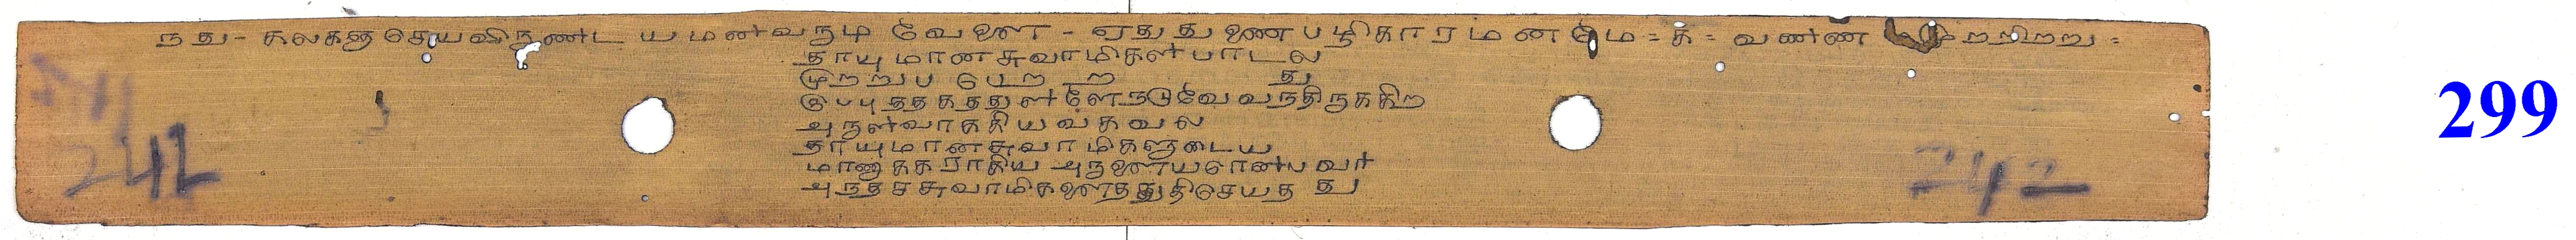 நது - கலகஞ செயயிருண்ட யமன்வருமு வேளை - ஏதுதுணை பழிகாரமனமே = க = வண்ண முறறிறறு =
தாயுமானசுவாமிகள்பாடல
முறறுப பெறறது
இபபுததகததுள்ளேநடுவேவந்திருககிற
அருள்வாககியவகவல
தாயுமானசுவாமிகளுடைய
மாணாககராகிய அருளையரென்பவர்
அந்தச்சுவாமிகளைத்துதிசெயதது
299
242
242